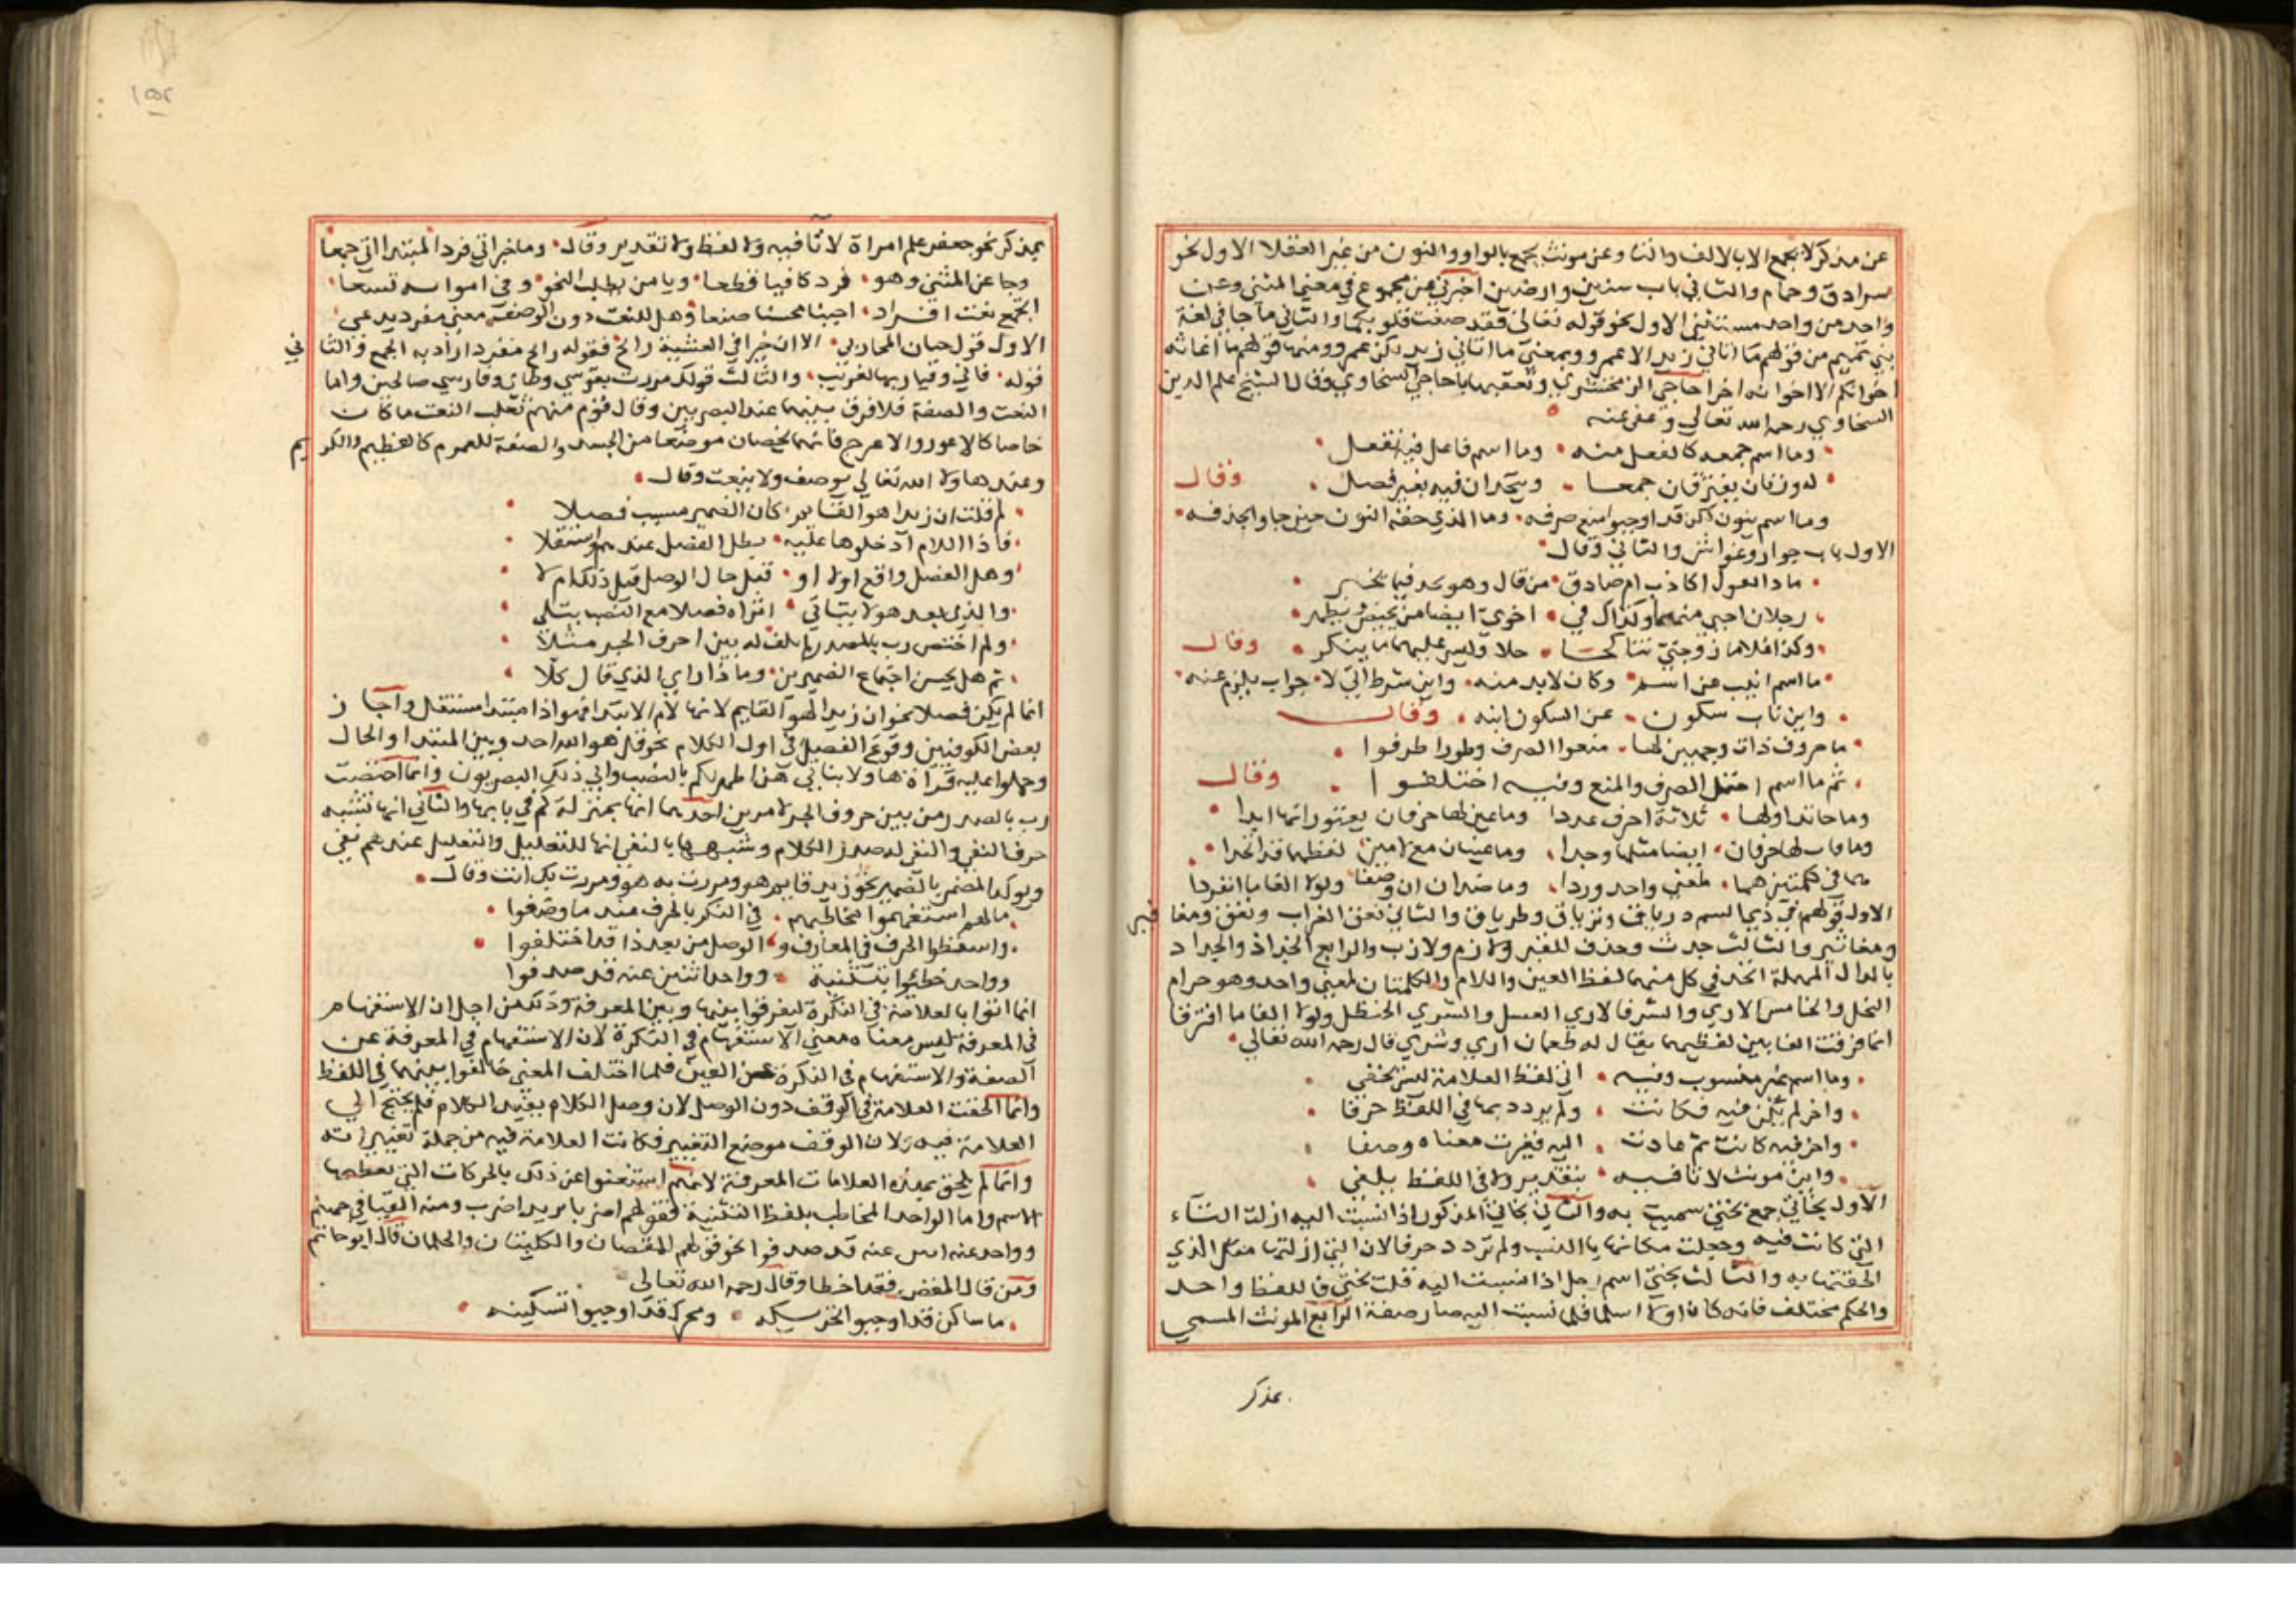 عن مذكر لا يجمع الا بالالف والتا وعن مونث يجمع بالواو والنون من غير العقلا الاول نحو
سرادق وحمام والثاني باب سنين وارضين اخبرني عن مجموع في معنى المثنى وعن
واحد من واحد مستثنى الاول نحو قوله تعالى فقد صغت قلوبكما والثاني ما جا في لغة
بني تميم من قولهم ما اتاني زيد الا عمرو وبمعنى ما اتاني زيد لكن عمرو ومنها قولهم ما اعانه
اخوانكم الا اخوانه اخر احاجي الزمخشري وتعقبها باحاجي السخاوي وقال الشيخ علم الدين
السخاوي رحمه الله تعالى وعفى عنه
وما اسم جمعه كالفعل منه وما اسم فاعل فيه كفعل
له وزنان يفترقان جمعا ويتحدان فيه بغير فصل وقال
وما اسم ينون لكن قد اوجبوا منع صرفه وما الذي حقه النون حين جاوا بحذفه
الاول باب جوار وغواش والثاني وقال
ماذا تقول اكاذب ام صادق من قال وهو يجد فيما يخبر
رجلان اختي منهما وكذاك في اخوي ايضا من يحيض ويطهر
وكذا غلاما زوجتي تناكحا حلا وليس عليهما ما ينكر وقال
ما اسم انيب عن اسم وكان لا بد منه واين شرط اتى لا جواب يلزم عنه
واين ناب سكون عن السكون ابنه وقال
ما حروف ذات وجهين لها منعوا الصرف وطورا صرفوا
ثم ما اسم احتمل الصرف والمنع وفيه اختلفوا وقال
وما خاتد اولها ثلاثة احرف عددا وما عين لها حرفان يعتورانها ابدا
وما فاب لها حرفان ايضا مثلها وجدا وما عينان مع لامين لفظهما قد اتحدا
هما في كلمتين هما لمعنى واحد وردا وما ضدان ان وضعا ولولا الفا ما انفردا
الاول قولهم في ذيما لسم درياق وترياق وطرياق والثاني نعق الغراب ونغق ومغا فير
ومغاثير والثالث جدث وجدف للقبر ولازم ولازب والرابع الجذاذ والجداد
بالدال المهملة اتحد في كل منهما لفظ العين واللام والكلمتان لمعنى واحد وهو صرام
النخل والخامس الاري والشري فالاري العسل والشري الحنظل ولولا الفا ما افترقا
انما فرقت الفا بين لفظيهما يقال له طعمان اري وشري قال رحمه الله تعالى
وما اسم غير منسوب وفيه اتى لفظ العلامة ليس يخفى
واخر لم تكن فيه فكانت ولم يردد بها في اللفظ حرفا
واخر فيه كانت ثم عادت اليه فغيرت معناه وصفا
واين مونث لا تا فيه بتقدير ولا في اللفظ يلفى
الاول بخاتي جمع بختي سميت به والثاني بخاتي المذكور اذا نسبت اليه ازلت التاء
التي كانت فيه وجعلت مكانها يا النسب ولم تردد حرفا لان التي ازلتها مثل الذي
الحقتها به والثالث بختي اسم رجل اذا نسبت اليه قلت بختي فاللفظ واحد
والحكم مختلف فانه كان اولا اسما فلما نسبت اليه صار صفة الرابع المونث المسمى
بمذكر
١٥٢
بمذكر نحو جعفر علم امراة لا تا فيه ولا لفظ ولا تقدير وقال وما خبر اتى فردا لمبتدا اتى جمعا
وجا عن المثنى وهو فرد كافيا قطعا ويا من يطلب النحو وفي امواسه تسعا
ايجمع نعت افراد اجبنا محسنا صنعا وهل للنعت دون الوصف معنى مفرد يدعى
الاول قول حيان المحاربي الا ان خيرا في العشية رائح فقوله رائح مفرد اراد به الجمع والثا ني
قوله فاني وقيار بها لغريب والثالث قولك مررت بقوسي وطائي وفارسي صالحين واما
النعت والصفة فلا فرق بينهما عند البصريين وقال قوم منهم ثعلب النعت ما كان
خاصا كالاعور والاعرج فانهما يخصان موضعا من الجسد والصفة للعموم كالعظيم والكر يم
وعند هاولا الله تعالى يوصف ولا ينعت وقال
لم قلت ان زيدا هو القائم كان الضمير مسيب فصلا
فاذا اللام ادخلوها عليه بطل الفصل عندهم واستقلا
وهل الفصل واقع اولا او قبل حال الوصل قيل ذلكم لا
والذي بعد هولا بناتي اتراه فصلا مع النصب يتلى
ولم اختص رب بالصدر لم يلف له بين احرف الجر مثلا
ثم هل يحسن اجتماع الضميرين وما ذا راي الذي قال كلا
انما لم يكن فصلا نحو ان زيدا لهو القايم لانها لام الابتدا فهو اذا مبتدا مستقل واجا ز
بعض الكوفيين وقوع الفصل في اول الكلام نحو قل هو الله احد وبين المبتدا والحال
وحملوا عليه قراة هاولا بناتي هن اطهر لكم بالنصب وابى ذلك البصريون وانما اختصت
رب بالصدر من بين حروف الجر لامرين احدهما انها بمنزلة كم في بابها والثاني انها تشبه
حرف النفي والنفي له صدر الكلام وشبهها بالنفي انها للتقليل والتقليل عندهم نفي
ويوكد المضمر بالضمير نحو زيد قايم هو ومررت به هو ومررت بك انت وقال
مالهم استفهموا مخاطبهم في النكر بالحرف عند ما وقفوا
واسقطوا الحرف في المعارف والوصل من بعد ذا قد اختلفوا
وواحد خطئوا بتثنية وواحد اثنين عنه قد صدفوا
انما اتوا بالعلامة في النكرة ليفرقوا بينها وبين المعرفة وذلك من اجل ان الاستفهام
في المعرفة ليس معناه معنى الاستفهام في النكرة لان الاستفهام في المعرفة عن
الصفة والاستفهام في النكرة عن العين فلما اختلف المعنى خالفوا بينهما في اللفظ
وانما الحقت العلامة في الوقف دون الوصل لان وصل الكلام يفيد الكلام فلم يحتج الى
العلامة فيه ولان الوقف موضع التغيير فكانت العلامة فيه من جملة تغييراته
وانما لم يلحق بهذه العلامات المعرفة لانهم استغنوا عن ذلك بالحركات التي لفظها
الاسم واما الواحد المخاطب بلفظ التثنية فقولهم اضربا يريد اضرب ومنه القيا في جهنم
وواحد عنه قد صدفوا نحو قولهم المقصان والكلبتان والجلمان قال ابو حاتم
ومن قال المقص فقد اخطا وقال رحمه الله تعالى
ما ساكن قد اوجبوا تحريكه ومحرك قد اوجبوا تسكينه